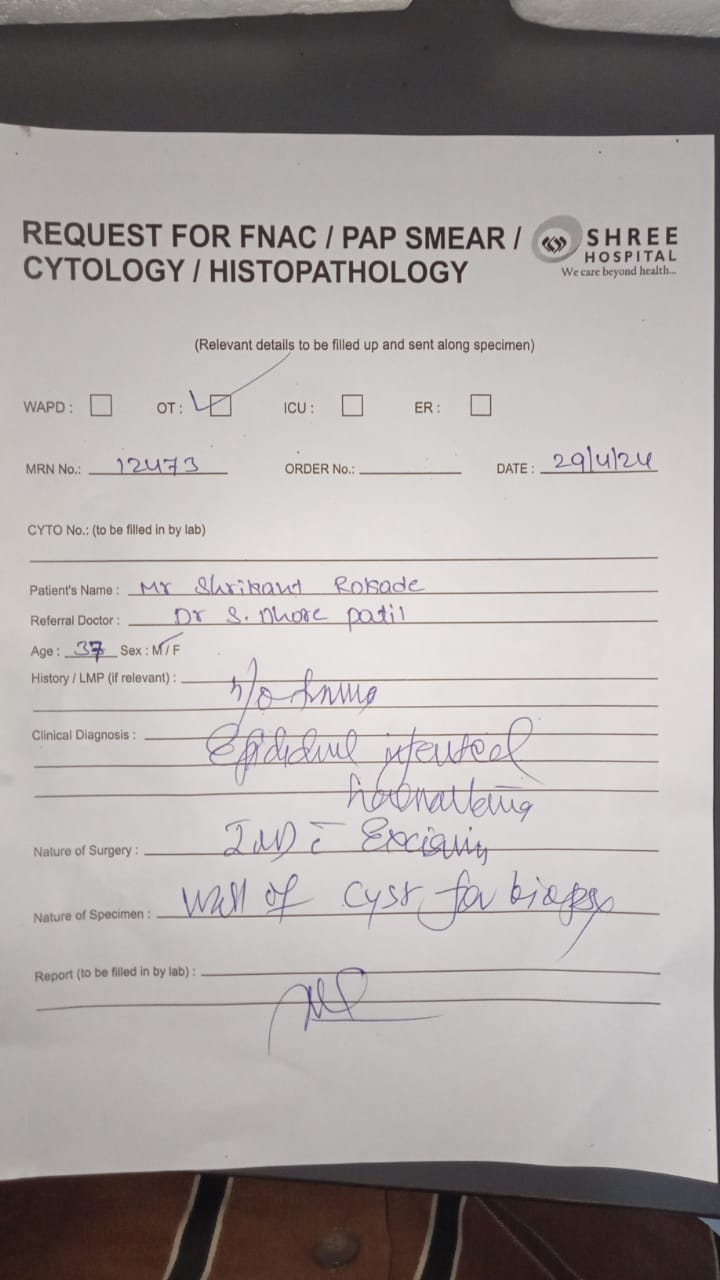 REQUEST FOR FNAC / PAP SMEAR /
CYTOLOGY / HISTOPATHOLOGY
SHREE
HOSPITAL
We care beyond health...
(Relevant details to be filled up and sent along specimen)
WAPD : OT : ICU : ER :
MRN No.: 12473 ORDER No.: DATE : 29/4/24
CYTO No.: (to be filled in by lab)
Patient's Name : Mr Shrikant Rokade
Referral Doctor : Dr S. Dhore patil
Age : 37 Sex : M / F
History / LMP (if relevant) : h/o
Clinical Diagnosis :
Nature of Surgery :
Nature of Specimen : Wall of cyst for biopsy
Report (to be filled in by lab) :